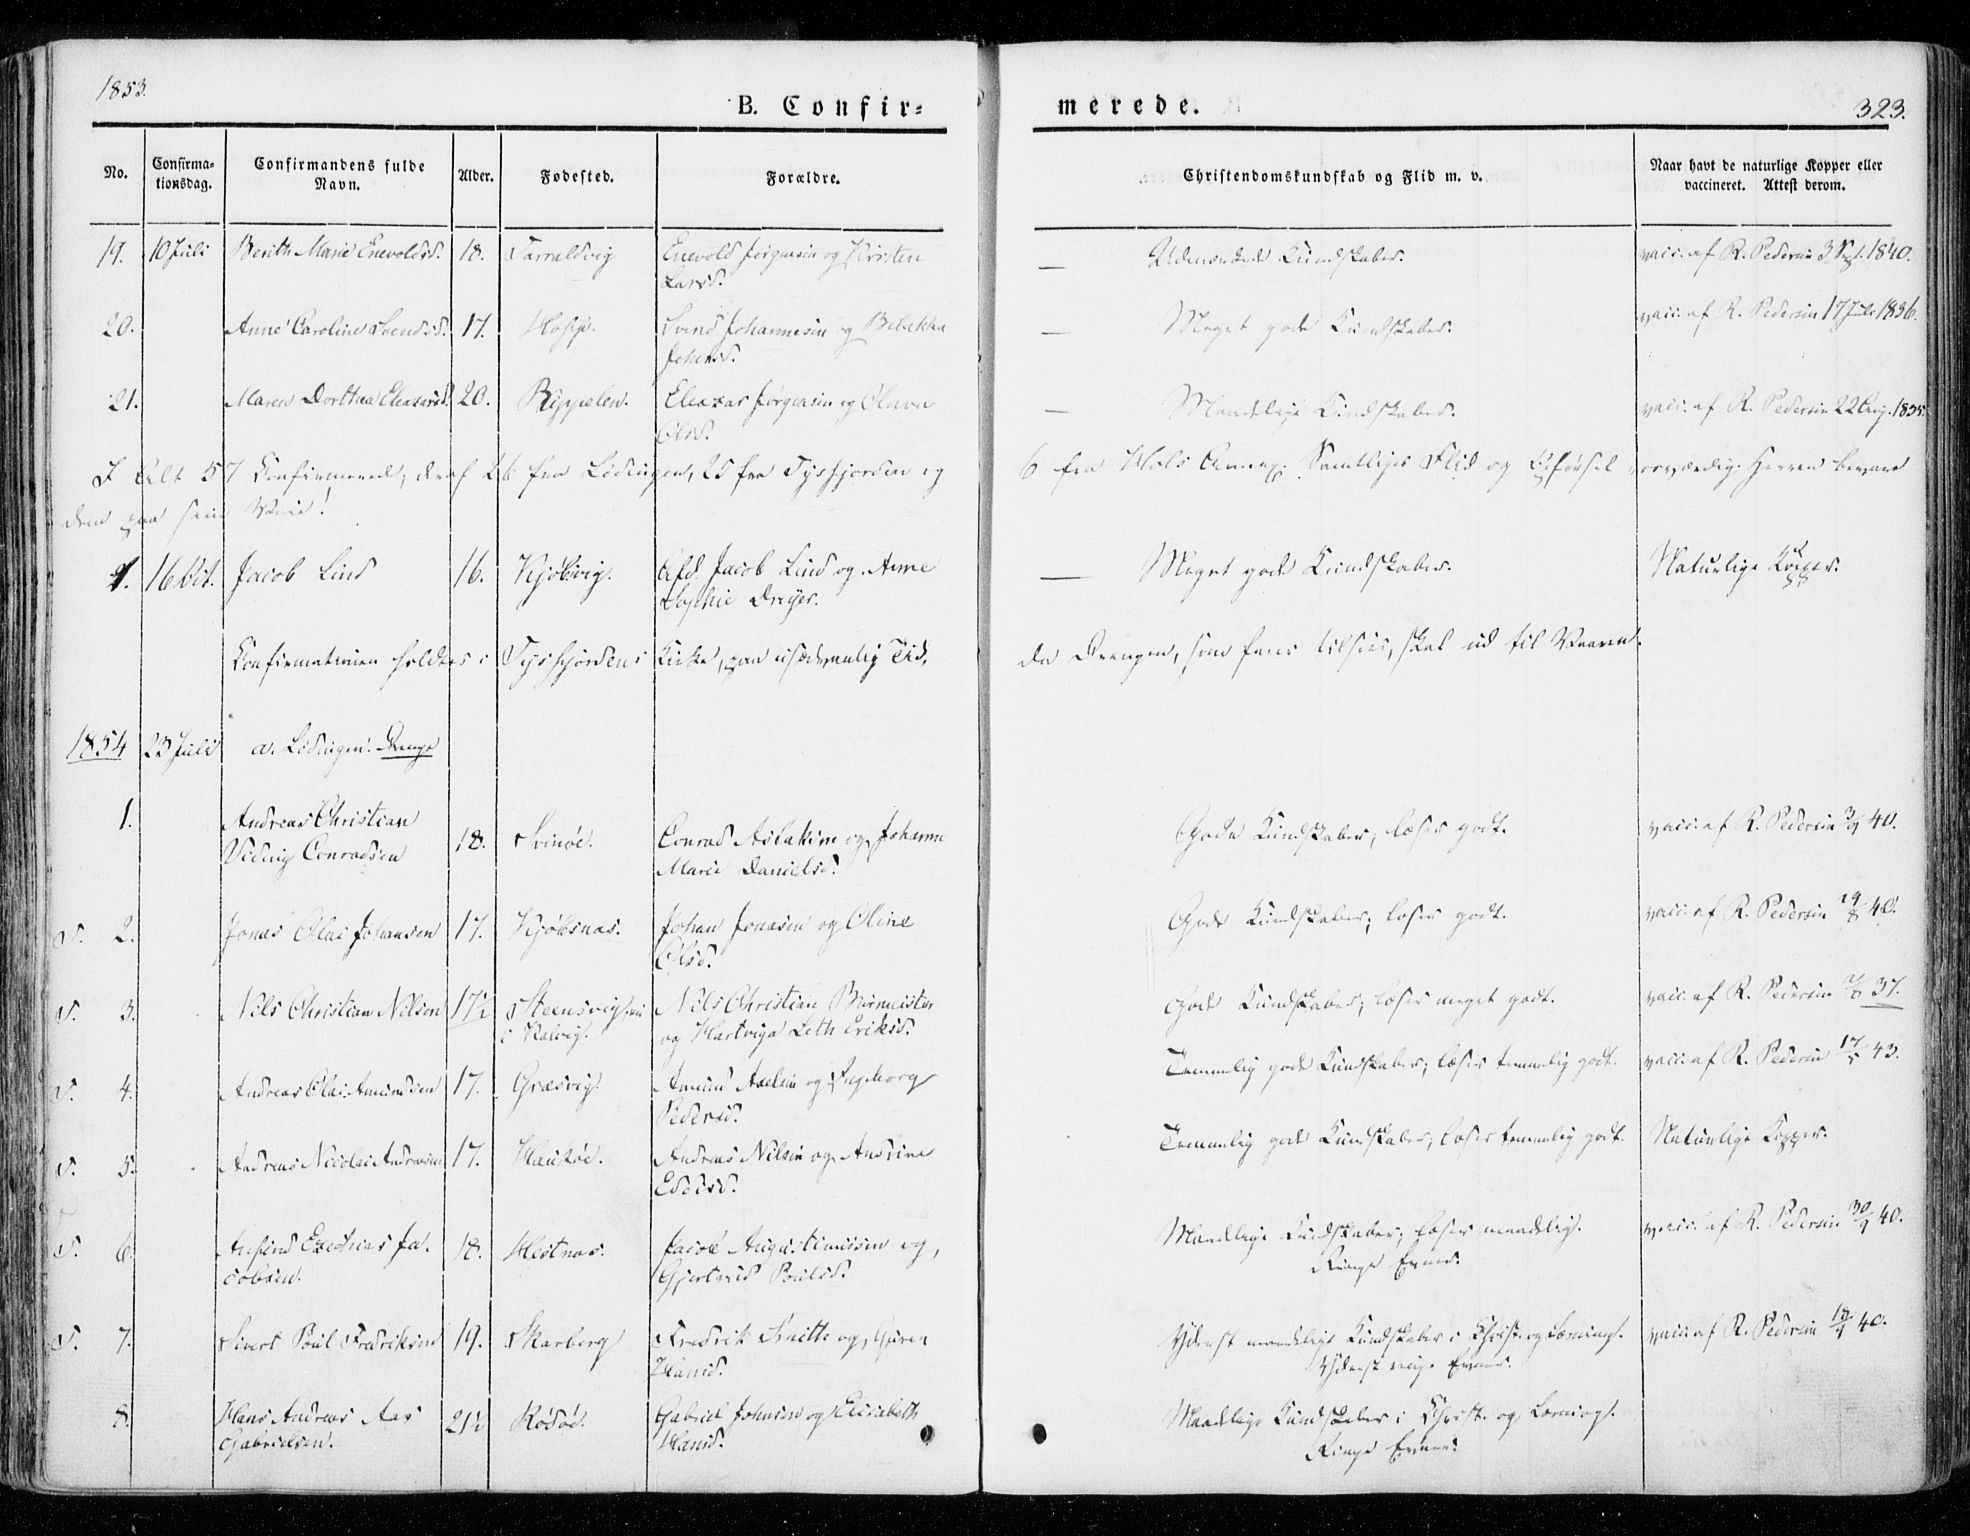 1853.
B. Confir-
merede.
323.
No.
Confirma-
tionsdag.
Confirmandens fulde
Navn.
Alder.
Fødested.
Forældre.
Christendomskundskab og Flid m. v.
Naar havt de naturlige Kopper eller
vaccineret. Attest derom.
19. 10 Juli Berith Marie Enevoldsd. 18. Tarraldvig Enevold Jørgensen og Kirsten — Udmærkede Kundskaber. vacc. af R. Pedersen 3 Sept. 1840.
Larsd.
20. Anne Caroline Svendsd. 17. Svend Johannesen og Bebekka — Meget gode Kundskaber. vacc. af R. Pedersen 17 Juli 1836.
Johansd.
21. Maren Dorthea Eleazarsd. 20. Rippelen. Eleazar Jørgensen og Olava — Maadelige Kundskaber. vacc. af R. Pedersen 22 Aug. 1835.
Olsd.
I Alt 57 Confirmerede, deraf 26 fra Lødingen, 25 fra Tysfjorden og 6 fra Hols Annex. Samtliges Flid og Opførsel Herren bevare
dem paa sin Veie!
1. 16 Oct. Jacob Lind 16. Kjøbvig. Afd. Jacob Lind og Anne — Meget gode Kundskaber. Naturlige Kopper.
Sophie Dreyer.
Confirmationen holdtes i Tysfjordens Kirke, paa usædvanlig Tid, da Drengen, som farer tilsøes, skal ud til Vaaren.
1854 23 Juli a. Lødingen. Drenge
1. Andreas Christian
Vidnig Conradsen 18. Svinøe. Conrad Aslaksen og Johanne Gode Kundskaber; læser godt. vacc. af R. Pedersen 3/9 40.
Marie Danielsd.
T. 2. Jonas Olai Johansen 17. Kjøbsnæs. Johan Jonasen og Oline Gode Kundskaber; læser godt. vacc. af R. Pedersen 19/8 40.
Olsd.
T. 3. Nils Christian Nilsen 17½ Steensvig, nu Nils Christian Burmeister Gode Kundskaber; læser meget godt. vacc. af R. Pedersen 2/8 37.
i Kalvig. og Hartviga Leth Eriksd.
T. 4. Andreas Olai Amundsen 17. Græsvig. Amund Axelsen og Ingeborg Temmelig gode Kundskaber; læser temmelig godt. vacc. af R. Pedersen 17/5 43.
Pedersd.
T. 5. Andreas Nicolai Andreasen 17. Haukøe. Andreas Nilsen og Andrine Temmelig gode Kundskaber; læser temmelig godt. Naturlige Kopper.
Edisd.
T. 6. Anfind Ezechias Ja- 18. Hestnæs. Jacob Augustinussen og Maadelige Kundskaber; læser maadelig. vacc. af R. Pedersen 30/9 40.
cobsen. Gjertrud Poulsd. Ringe Evner.
T. 7. Sivert Poul Fredriksen 19. Skarberg Fredrik Smitte og Guren Yderst maadelige Kundskaber i Christ. og Læsning. vacc. af R. Pedersen 18/9 40.
Hansd. Yderst ringe Evner.
8. Hans Andreas Aas 21½ Rødøe. Gabriel Johnsen og Elisabeth Maadelige Kundskaber i Christ. og Læsning.
Gabrielsen. Hansd. Ringe Evner.